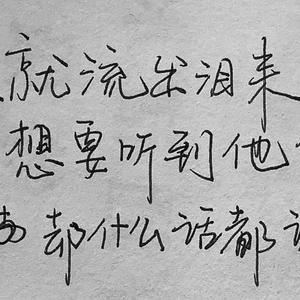 就流出泪来
想要听到他
却什么话都